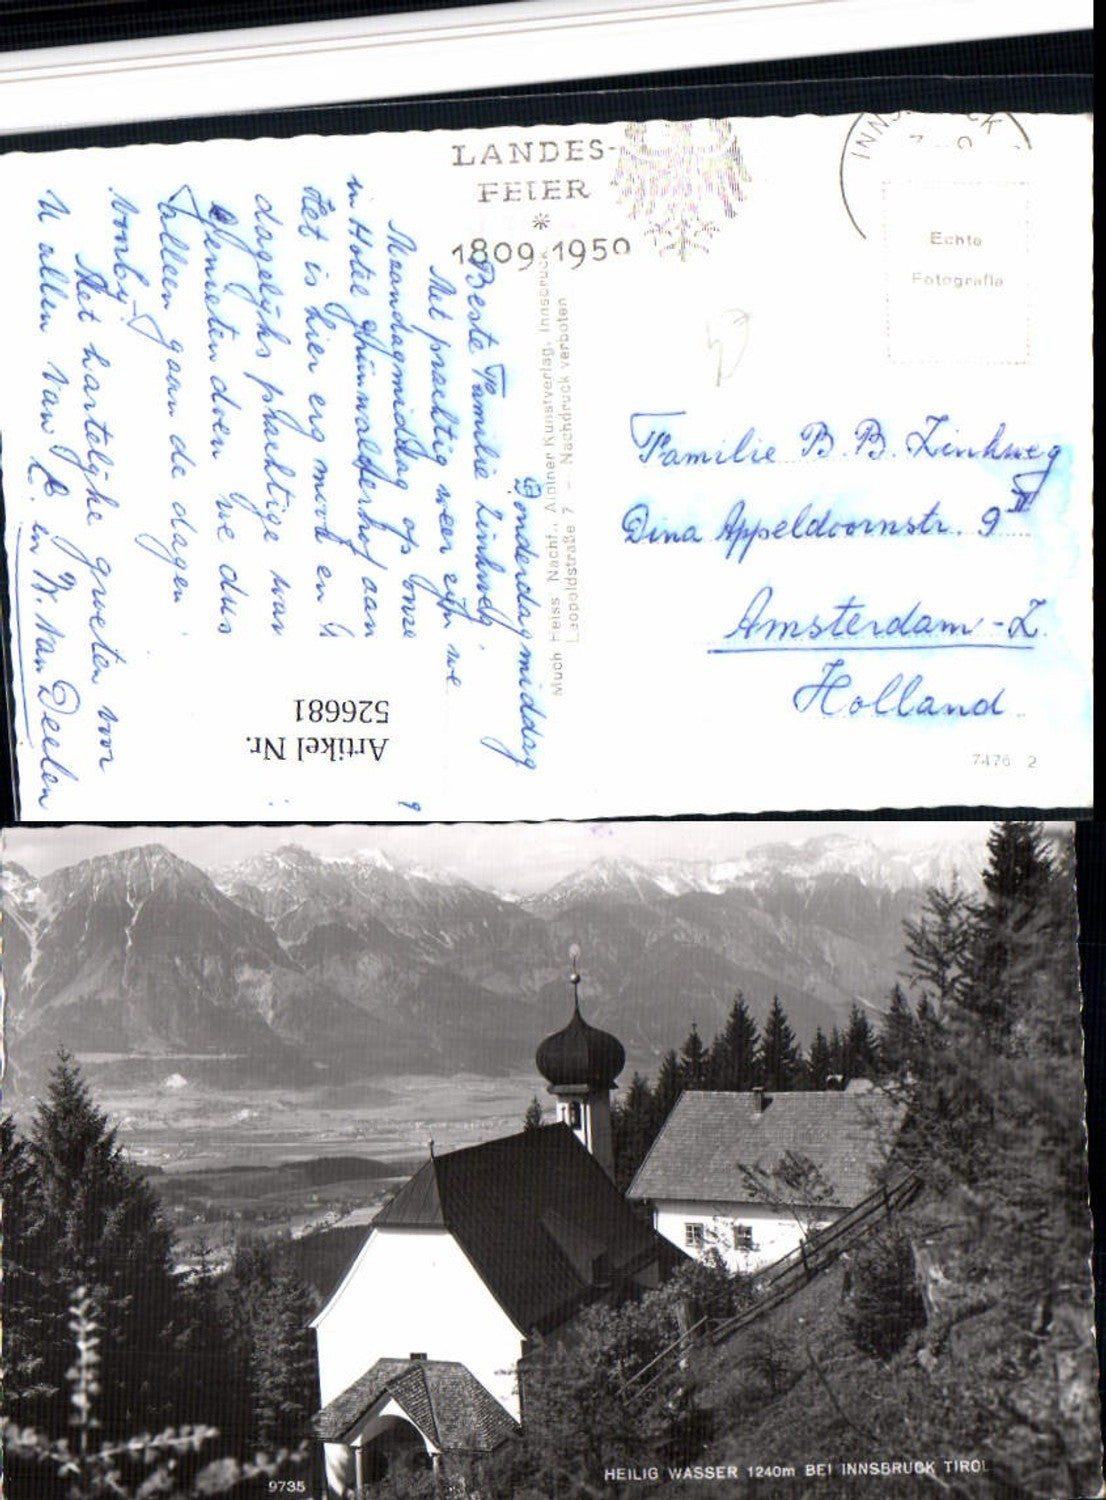 LANDES-
FEIER
*
1809-1950
INNSBRUCK
Echte
Fotografie
Donderdagmiddag
Beste Familie Zinkweg,
Met prachtig weer zijn we
Maandagmiddag op onze
in Hotel Grünwalderhof aan
Het is hier erg mooi en
dagelijks prachtige wan
Genieten doen we dus
alleen gaan de dagen
voorbij.
Met hartelijke groeten voor
U allen van L. en W. van Deelen
Much Heiss Nachf., Alpiner Kunstverlag, Innsbruck
Leopoldstraße 7 — Nachdruck verboten
Familie B. B. Zinkweg
Dina Appeldoornstr. 9 II
Amsterdam-Z.
Holland
7476 2
Artikel Nr.
526681
9735
HEILIG WASSER 1240m BEI INNSBRUCK TIROL